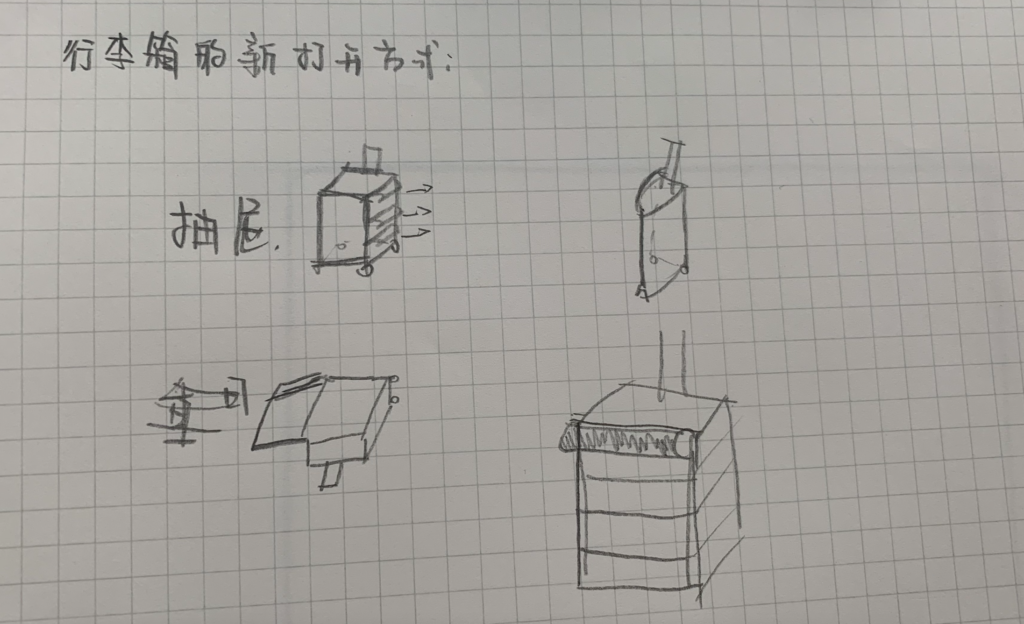 行李箱的新打开方式:
抽屉.